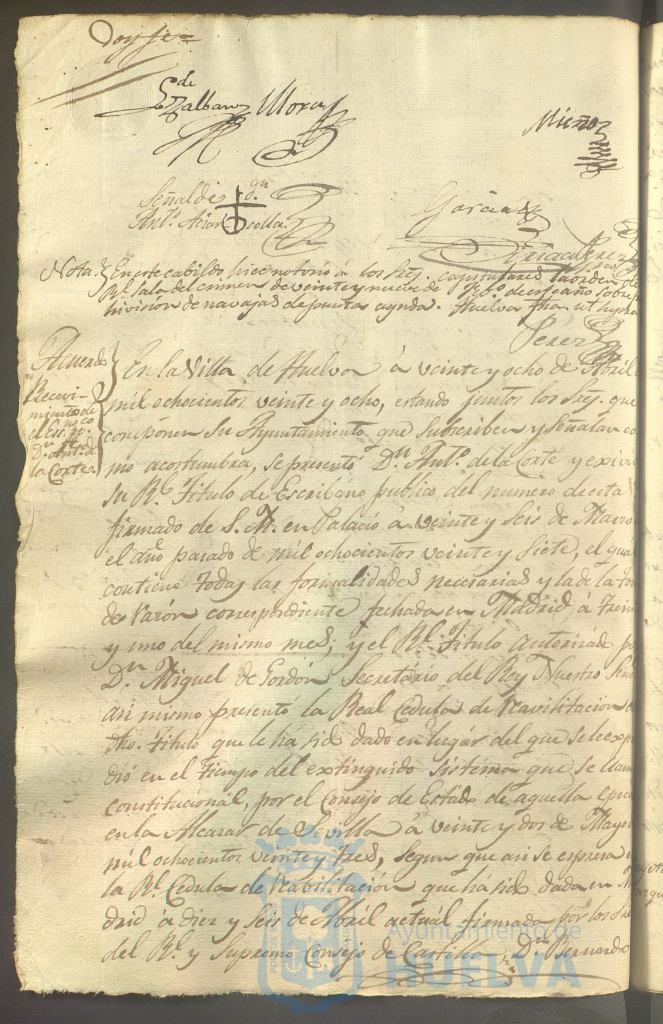 Doy fe
de
Zalbara Mora
Muñoz
Señal de d.n
Ant.o
Garcia
Perez
Nota. En este cabildo hice notorio á los Sres. capitulares la orden de
Rl. Sala del crimen de veinte y nueve de de este año sobre
division de navajas de punta aguda. Huelva fha. ut supra
Perez
Acuerdo
Recivi-
miento de
el Es.no
D.n Ant.o de
la Corte
En la Villa de Huelva á veinte y ocho de Abril
mil ochocientos veinte y ocho, estando juntos los Sres. que
componen su Ayuntamiento que subscriben y señalan co
mo acostumbra, se presentó D.n Ant.o de la Corte y exivió
su Rl. Titulo de Escribano publico del numero de esta
firmado de S. M. en Palacio á veinte y seis de Marzo
el año pasado de mil ochocientos veinte y siete, el qual
contiene todas las formalidades necesarias y la de la toma
de Razón correspondiente fechada en Madrid á Treinta
y uno del mismo mes; y el Rl. Titulo autorizado por
D.n Miguel de Gordón Secretario del Rey Nuestro Señor
asi mismo presentó la Real Cedula de Reavilitacion
dho. Titulo que le há sido dado en lugar del que se le expi
dió en el tiempo del extinguido sistema que se llamó
constitucional, por el Consejo de Estado de aquella epoca
en la Alcazar de Sevilla á veinte y dos de Mayo
mil ochocientos veinte y tres, segun que asi se espresa
la Rl. Cedula de Reabilitación que há sido dada en Ma
drid á diez y seis de Abril actuál firmada por los Sres
del Rl. y Supremo Consejo de Castilla, D.n Bernardo
Ayuntamiento de
HUELVA